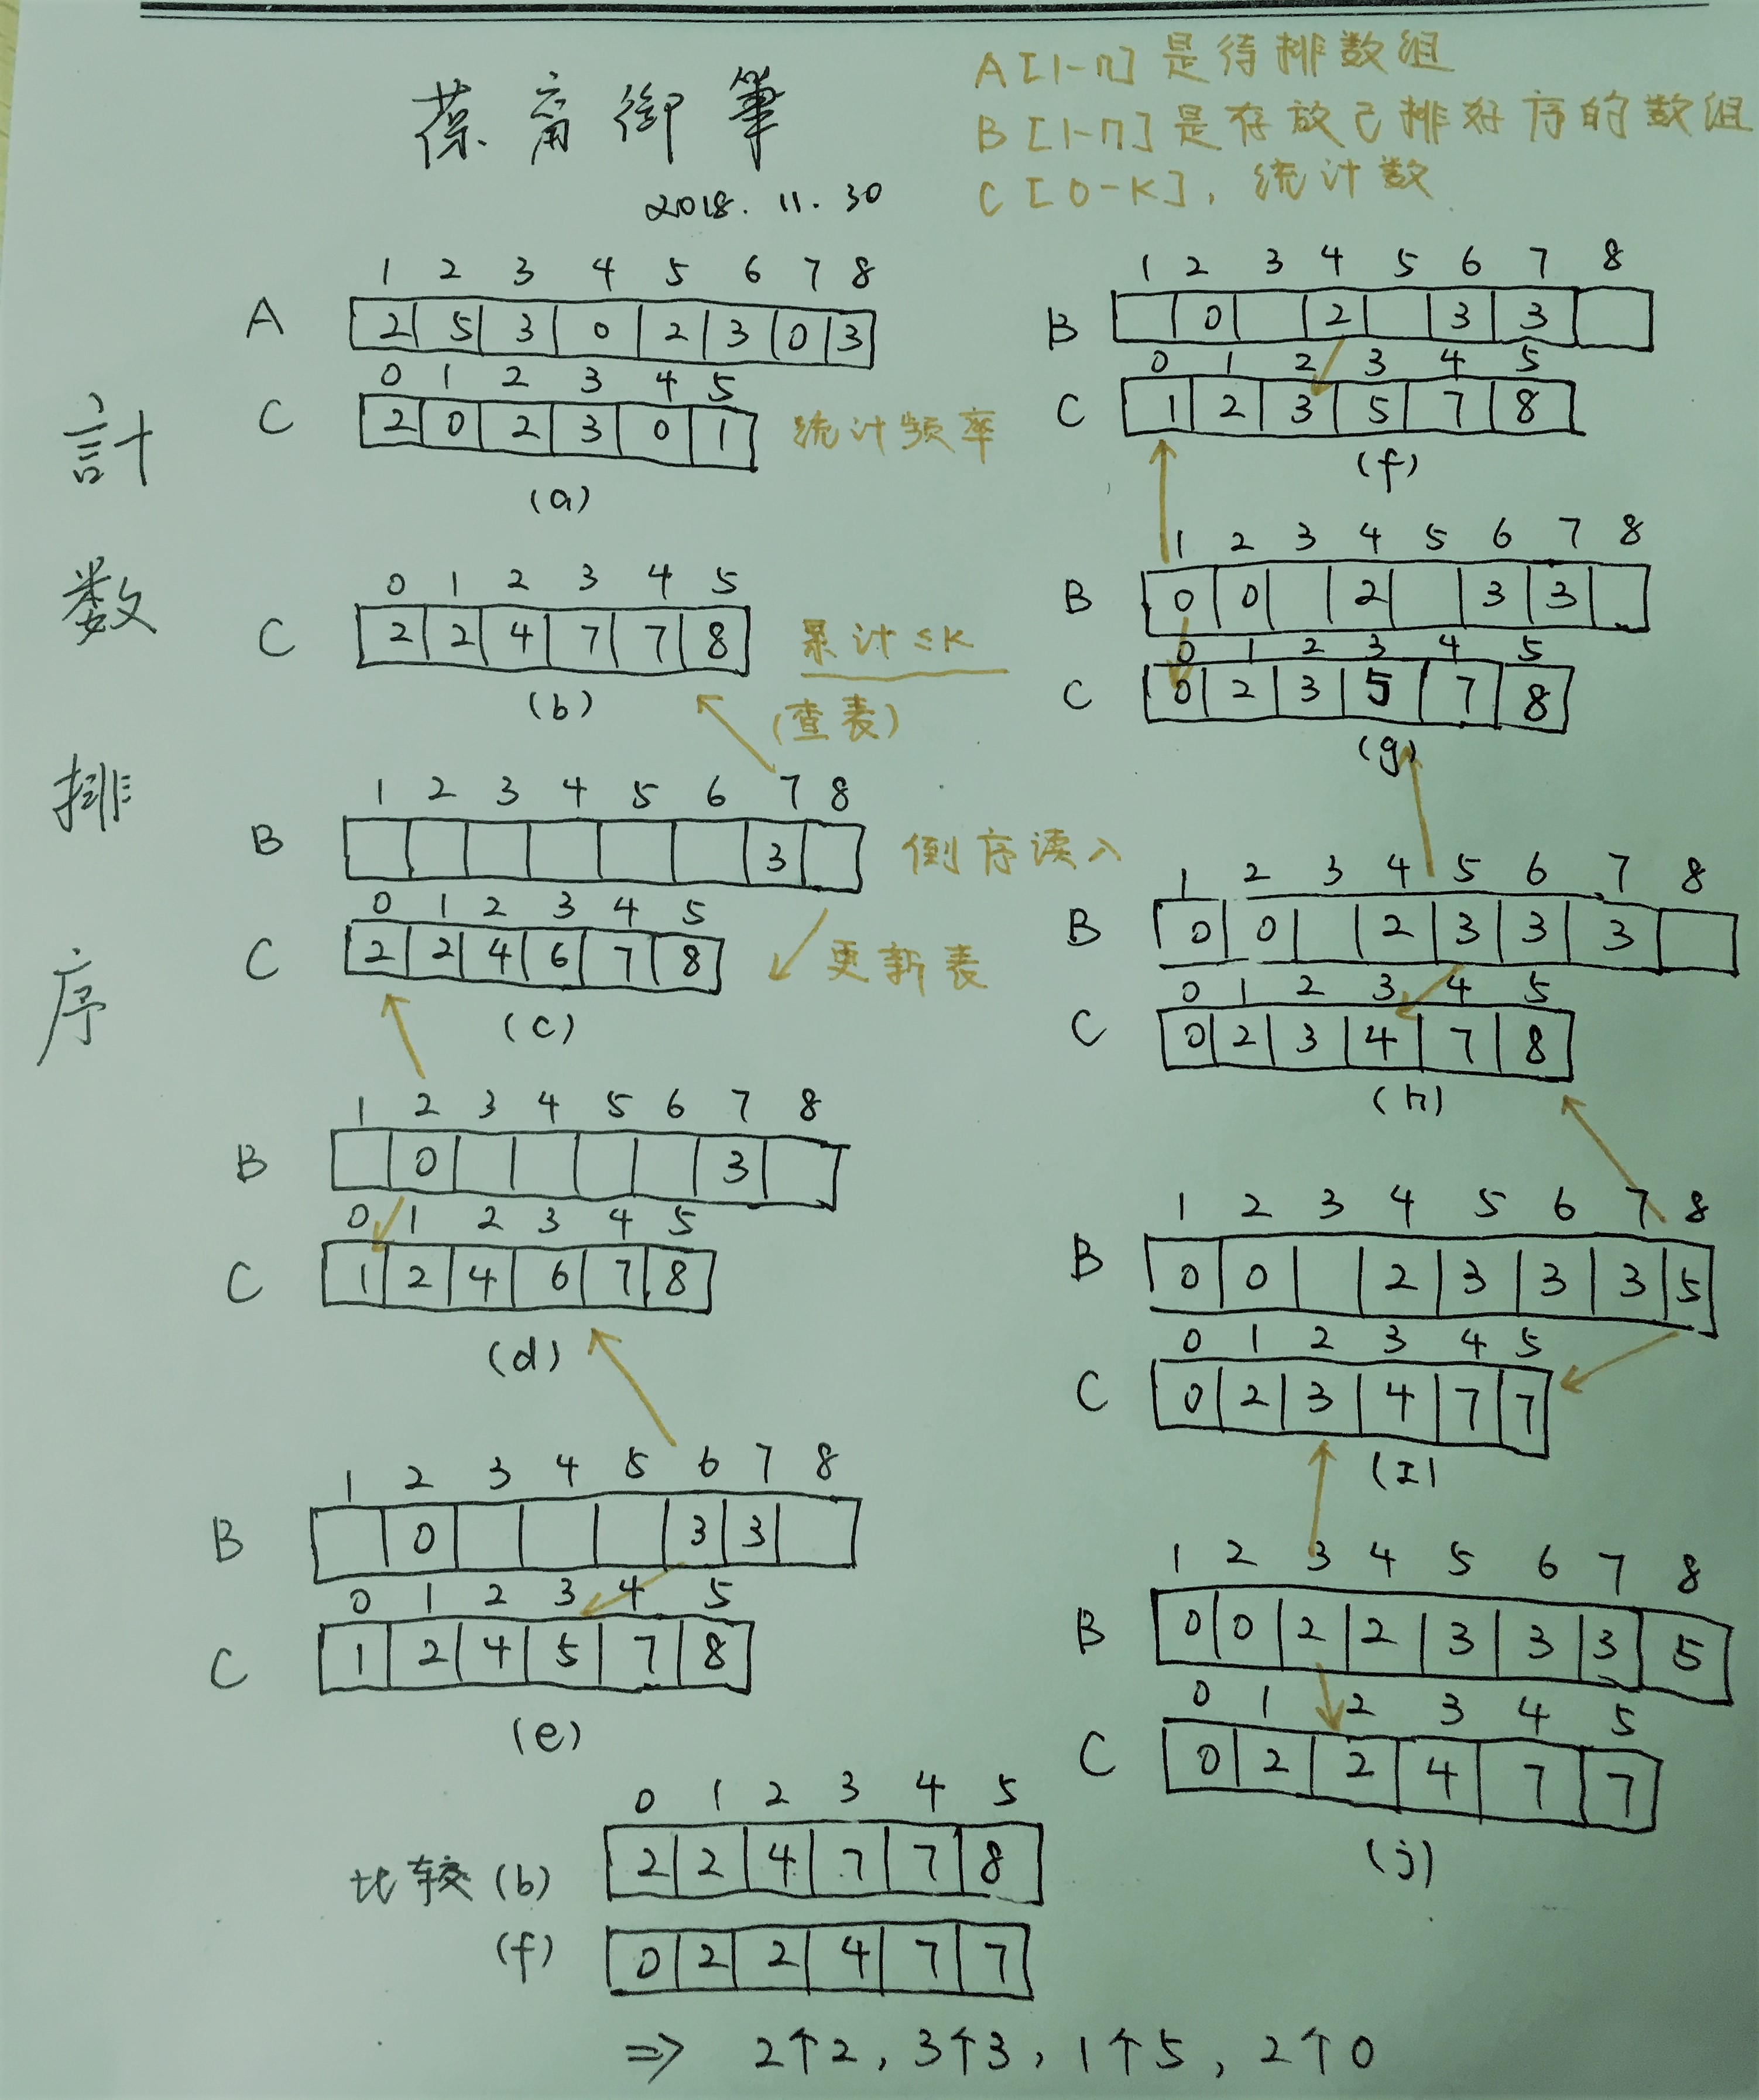 葆育御筆
2018. 11. 30
A [1-n] 是待排数组
B [1-n] 是存放已排好序的数组
C [0-K], 统计数
計数排序
1 2 3 4 5 6 7 8
A 2 5 3 0 2 3 0 3
0 1 2 3 4 5
C 2 0 2 3 0 1 统计频率
(a)
0 1 2 3 4 5
C 2 2 4 7 7 8 累计≤K
(b) (查表)
1 2 3 4 5 6 7 8
B 3 倒序读入
0 1 2 3 4 5
C 2 2 4 6 7 8 更新表
(c)
1 2 3 4 5 6 7 8
B 0 3
0 1 2 3 4 5
C 1 2 4 6 7 8
(d)
1 2 3 4 5 6 7 8
B 0 3 3
0 1 2 3 4 5
C 1 2 4 5 7 8
(e)
1 2 3 4 5 6 7 8
B 0 2 3 3
0 1 2 3 4 5
C 1 2 3 5 7 8
(f)
1 2 3 4 5 6 7 8
B 0 0 2 3 3
0 1 2 3 4 5
C 0 2 3 5 7 8
(g)
1 2 3 4 5 6 7 8
B 0 0 2 3 3 3
0 1 2 3 4 5
C 0 2 3 4 7 8
(h)
1 2 3 4 5 6 7 8
B 0 0 2 3 3 3 5
0 1 2 3 4 5
C 0 2 3 4 7 7
(I)
1 2 3 4 5 6 7 8
B 0 0 2 2 3 3 3 5
0 1 2 3 4 5
C 0 2 2 4 7 7
(j)
0 1 2 3 4 5
比较 (b) 2 2 4 7 7 8
(f) 0 2 2 4 7 7
⇒ 2↑2, 3↑3, 1↑5, 2↑0